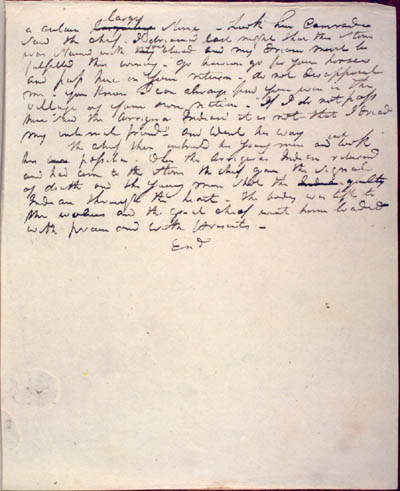 large
a certain stone - Look here Comrades
said the chief I dreamed last night that this stone
was stained with blood and my dream must be
fulfilled this evening. Go home go for your horses
and pass here on your return - do not disappoint
me, you know I can always find you even in the
village of your own nation. If I do not pass
here said the Indian it is not that I dread
my friend and went his way
The chief then his young men and took
his position. When the Indian returned
and had come to the stone the chief gave the signal
of death and the young men shot the guilty
Indian through the heart - The body was left to
the wolves and the good chief went home loaded
with praise and with presents -
End